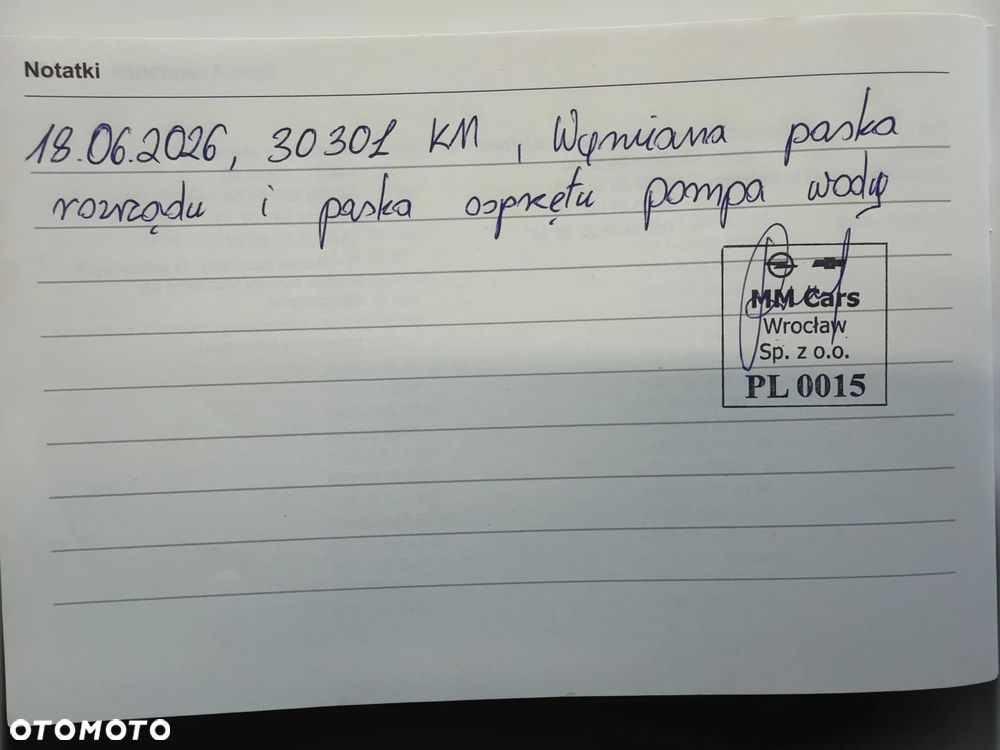 Notatki
18.06.2026, 30301 KM, Wymiana paska
rozrządu i paska osprzętu pompa wody
MM Cars
Wrocław
Sp. z o.o.
PL 0015
OTOMOTO